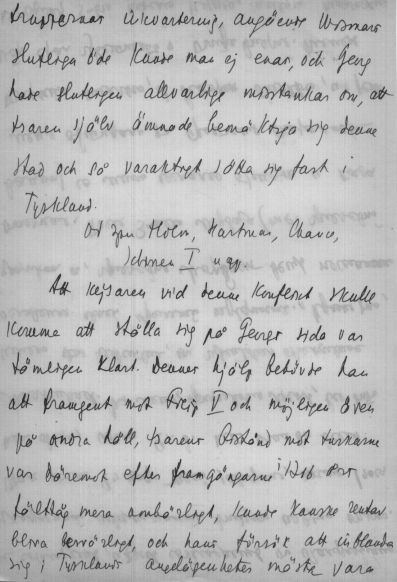 truppernas inkvartering, angående Wismars
slutliga öde kunde man ej enas, och Georg
hade slutligen allvarliga misstankar om, att
tsaren själv ämnade bemäktiga sig denne
stad och så varaktigt sätta sig fast i
Tyskland.
Holm, Hartman, Chance,
I
Att kejsaren vid denne konflikt skulle
komme att ställa sig på Georgs sida var
tämligen klart. Dennes hjälp behövde han
att framgent mot Filip V och möjligen även
på andra håll, tsarens bistånd mot turkarne
var däremot efter framgångarne i 1716 års
fälttåg mera umbärligt, kunde kanske rentav
bliva besvärligt, och hans försök att inblanda
sig i Tysklands angelägenheter måste vara